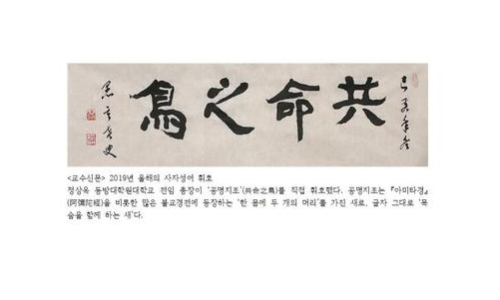 共命之鳥
<교수신문> 2019년 올해의 사자성어 휘호
정상옥 동방대학원대학교 전임 총장이 '공명지조'(共命之鳥)를 직접 휘호했다. 공명지조는 『아미타경』
(阿彌陀經)을 비롯한 많은 불교경전에 등장하는 '한 몸에 두 개의 머리'를 가진 새로, 글자 그대로 '목
숨을 함께 하는 새'다.